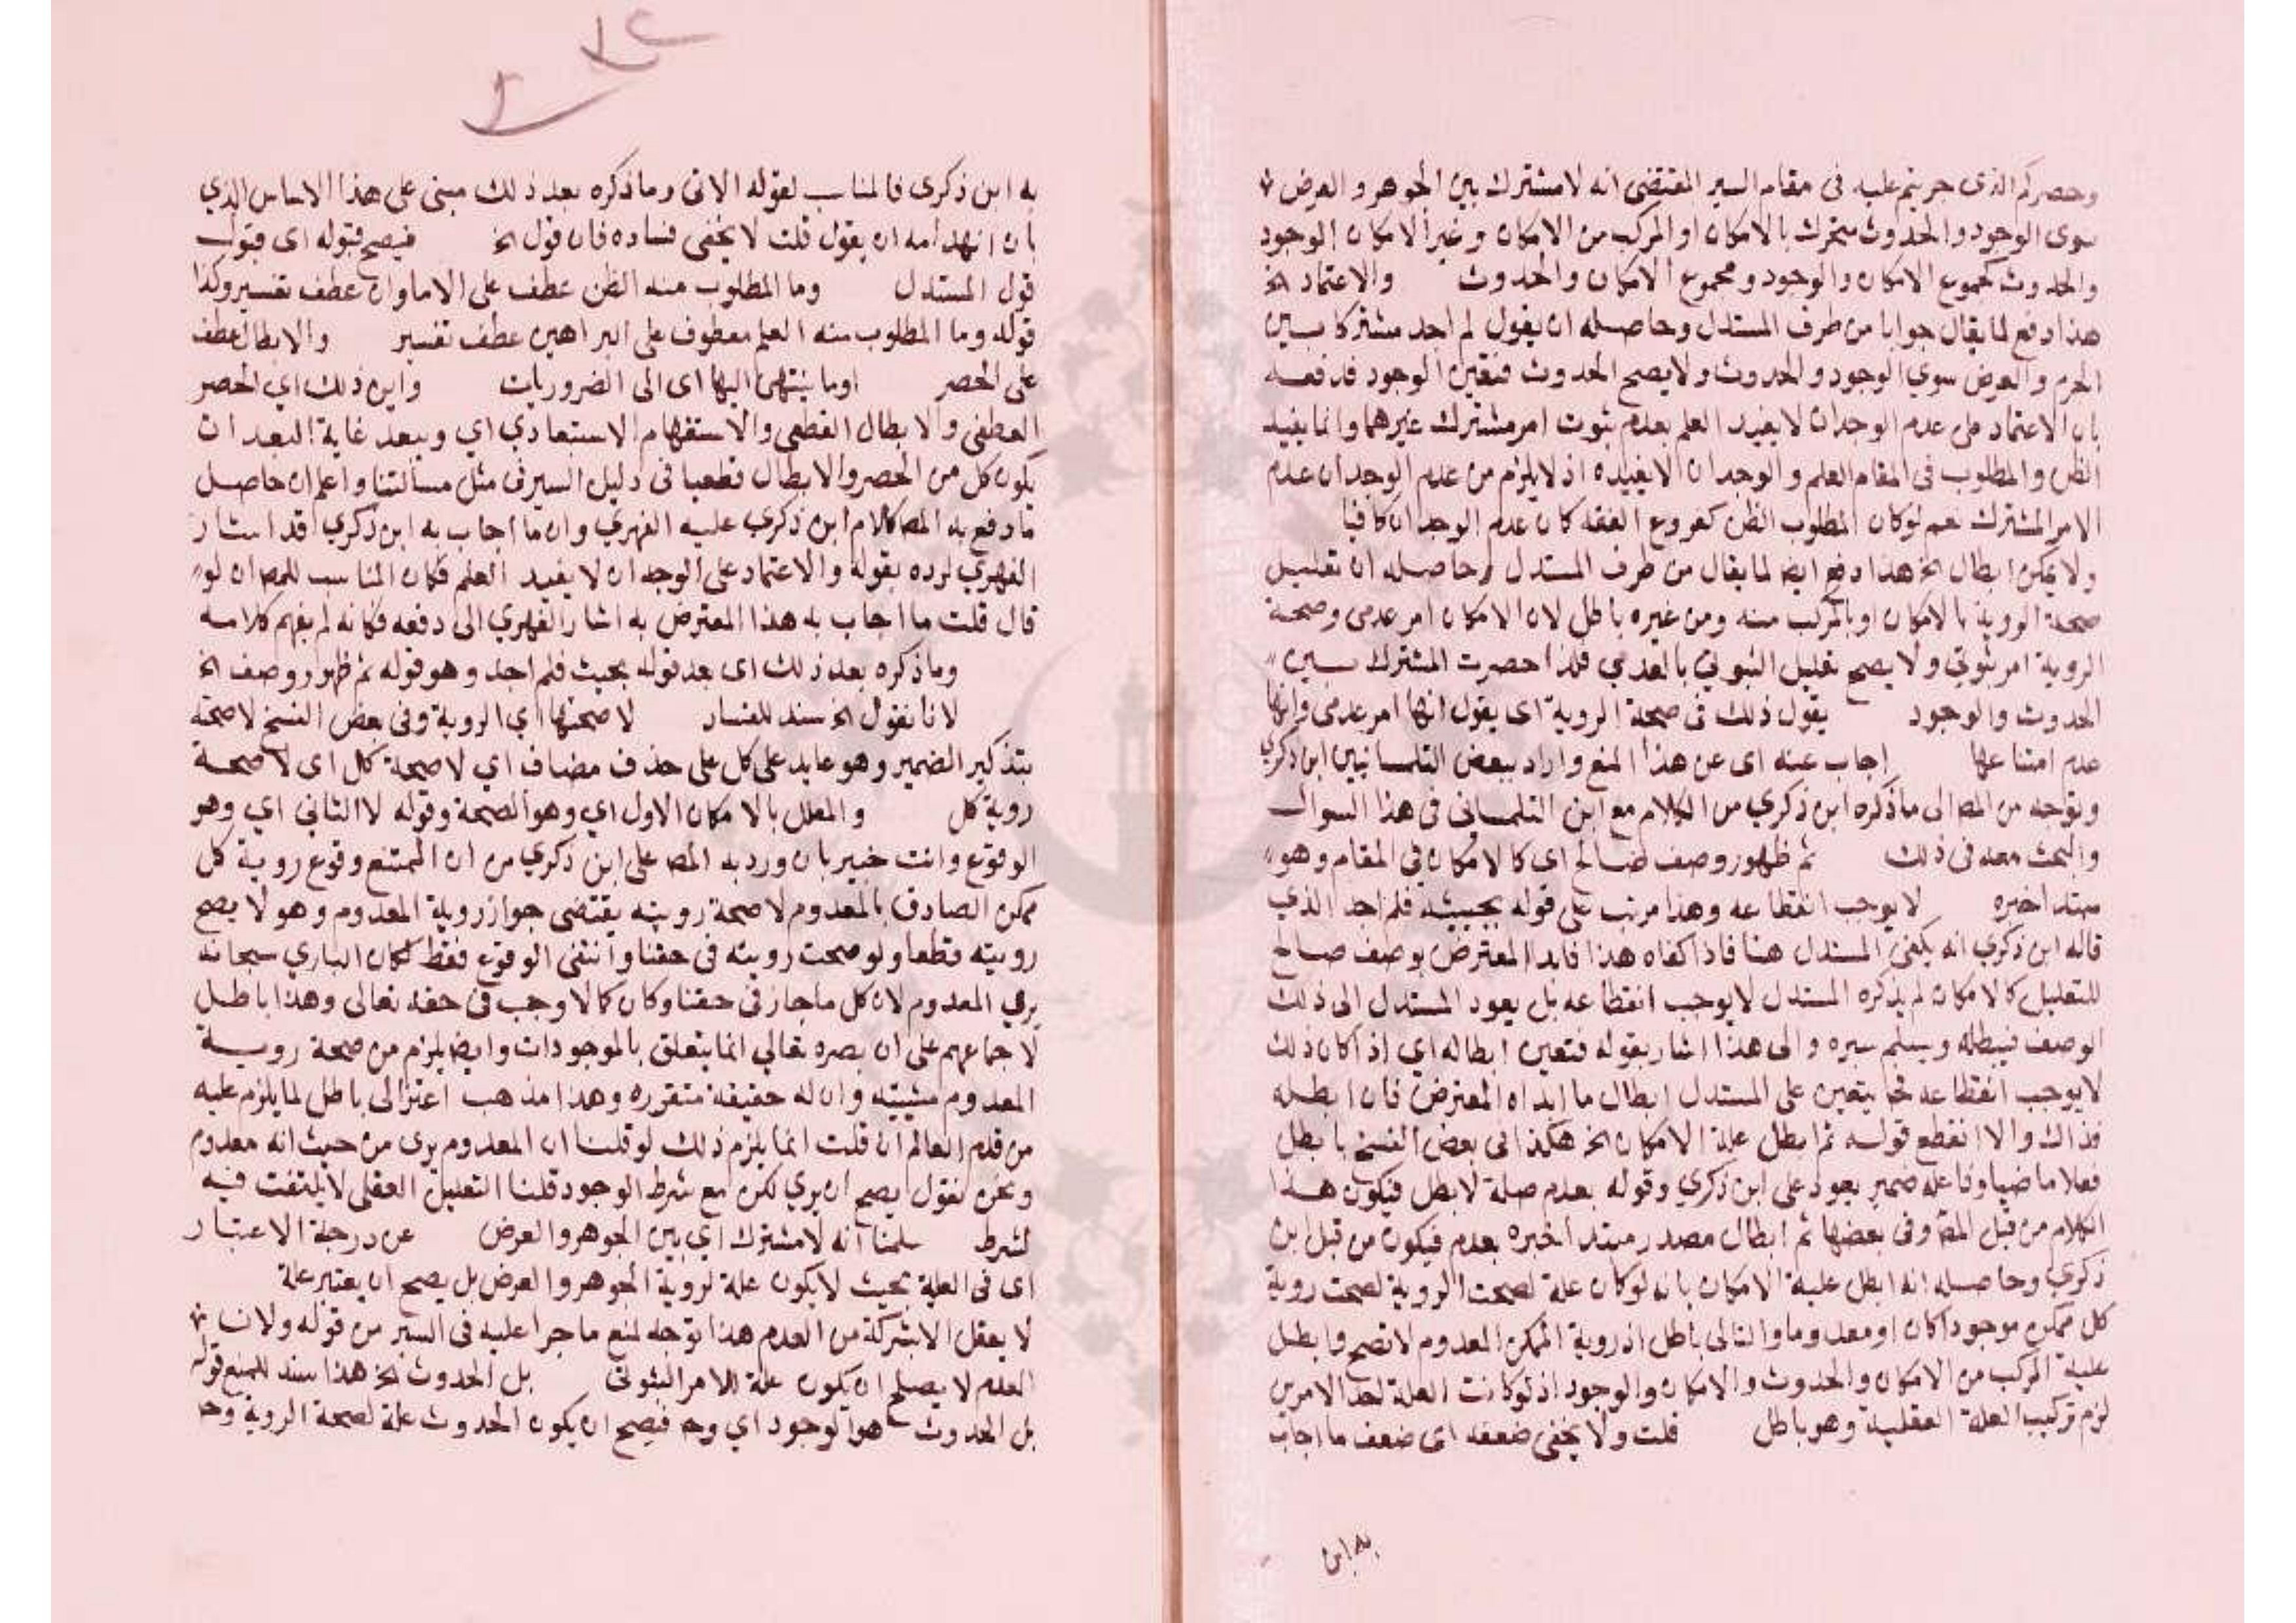 وحصركم الذى جريتم عليه فى مقام السبر المقتضى انه لا مشترك بين الجوهر والعرض
سوى الوجود والحدوث متحرك بالامكان او المركب من الامكان وغير الامكان الوجود
والحدوث كمجموع الامكان والوجود ومجموع الامكان والحدوث والاعتماد الخ
هذا دفع لما يقال جوابا من طرف المستدل وحاصله ان يقول لم اجد مشتركا بين
الجرم والعرض سوى الوجود والحدوث ولا يصح الحدوث فتعين الوجود فدفعه
بان الاعتماد على عدم الوجدان لا يفيد العلم بعدم ثبوت امر مشترك غيرهما وانما يفيد
الظن والمطلوب فى المقام العلم والوجدان لا يفيده اذ لا يلزم من عدم الوجدان عدم
الامر المشترك نعم لو كان المطلوب الظن كفروع الفقه كان عدم الوجدان كافيا
ولا يمكن ابطال الخ هذا دفع ايضا لما يقال من طرف المستدل وحاصله ان تعليل
صحة الروية بالامكان او بالمركب منه ومن غيره باطل لان الامكان امر عدمى وصحة
الروية امر ثبوتي ولا يصح تعليل الثبوتي بالعدمي فلذا حصرت المشترك بين
الحدوث والوجود يقول ذلك فى صحة الروية اى يقول انها امر عدمى فانها
عدم امتناعها اجاب عنه اى عن هذا المنع واراد ببعض التلمسانيين ابن ذكري
وتوجه من المص الى ما ذكره ابن ذكري من الكلام مع ابن التلمسانى فى هذا السوال
والبحث معه فى ذلك ثم ظهور وصف صالح اى كالامكان فى المقام وهو
مبتدا خبره لا يوجب انقطاعه وهذا مرتب على قوله بحثت فلم اجد الذي
قاله ابن ذكري انه يكفى المستدل هنا فاذا كفاه هذا فابدا المعترض بوصف صالح
للتعليل كالامكان لم يذكره المستدل لا يوجب انقطاعه بل يعود المستدل الى ذلك
الوصف فيبطله ويسلم سبره والى هذا اشار بقوله فتعين ابطاله اي اذا كان ذلك
لا يوجب انقطاعه فح يتعين على المستدل ابطال ما ابداه المعترض فان ابطله
فذاك والا انقطع قوله ثم ابطل علة الامكان الخ هكذا فى بعض النسخ بابطل
فعلا ماضيا وفاعله ضمير يعود على ابن ذكري وقوله بعدم صلة لابطل فيكون هذا
الكلام من قبل المص وفى بعضها ثم ابطال مصدر مبتدا خبره بعدم فيكون من قبل ابن
ذكري وحاصله انه ابطل علية الامكان بانه لو كان علة لصحت الروية لصحت روية
كل ممكن موجودا كان او معدوما والتالى باطل اذ روية الممكن المعدوم لا تصح وابطل
علية المركب من الامكان والحدوث والامكان والوجود اذ لو كانت العلة احد الامرين
لزم تركيب العلة العقلية وهو باطل قلت ولا يخفى ضعفه اى ضعف ما اجاب
به ابن
به ابن ذكري فالمناسب لقوله الاتى وما ذكره بعد ذلك مبنى على هذا الاساس الذي
بان انهدامه ان يقول قلت لا يخفى فساده فان قول الخ فيصح قبوله اى قبول
قول المستدل وما المطلوب منه الظن عطف على الاماران عطف تفسير وكذا
قوله وما المطلوب منه العلم معطوف على البراهين عطف تفسير والابطال عطف
على الحصر او ما ينتهى اليها اى الى الضروريات واين ذلك اي الحصر
القطعى والابطال القطعى والاستفهام الاستبعادي اي ويبعد غاية البعد ان
يكون كل من الحصر والابطال قطعيا فى دليل السبر فى مثل مسالتنا واعلم ان حاصل
ما دفع به المص كلام ابن ذكري عليه الفهري وان ما اجاب به ابن ذكري قد اشار
الفهري لرده بقوله والاعتماد على الوجدان لا يفيد العلم فكان المناسب للمص ان لو
قال قلت ما اجاب به هذا المعترض به اشار الفهري الى دفعه فكانه لم يفهم كلامه
وما ذكره بعد ذلك اى بعد قوله بحيث فلم اجد وهو قوله ثم ظهور وصف الخ
لانا نقول الخ سند للفساد لا صحتها اي الروية وفى بعض النسخ لا صحته
بتذكير الضمير وهو عايد على كل على حذف مضاف اي لا صحة كل اى لا صحة
روية كل والمعلل بالامكان الاول اي وهو الصحة وقوله لا الثاني اي وهو
الوقوع وانت خبير بان ورد به المص على ابن ذكري من ان الممتنع وقوع روية كل
ممكن الصادق بالمعدوم لا صحة رويته يقتضى جواز روية المعدوم وهو لا يصح
رويته قطعا ولو صحت رويته فى حقنا وانتفى الوقوع فقط لكان الباري سبحانه
يري المعدوم لان كل ما جاز فى حقنا وكان كمالا وجب فى حقه تعالى وهذا باطل
لاجماعهم على ان بصره تعالي انما يتعلق بالموجودات وايضا يلزم من صحة روية
المعدوم شيئيته وان له حقيقة متقررة وهذا مذهب اعتزالى باطل لما يلزم عليه
من قدم العالم ان قلت انما يلزم ذلك لو قلنا ان المعدوم يرى من حيث انه معدوم
ونحن نقول يصح ان يري لكن مع شرط الوجود قلنا التعليل العقلى لا يلتفت فيه
لشرط سلمنا انه لا مشترك اي بين الجوهر والعرض عن درجة الاعتبار
اى فى العلية بحيث لا يكون علة لروية الجوهر والعرض بل يصح ان يعتبر علة
لا يعقل الا بشركة من العدم هذا توجه لمنع ما جرا عليه فى السبر من قوله ولان
العدم لا يصلح ان يكون علة للامر الثبوتى بل الحدوث الخ هذا سند للمنع قوله
بل الحدوث هو الوجود اي وح فيصح ان يكون الحدوث علة لصحة الروية وح